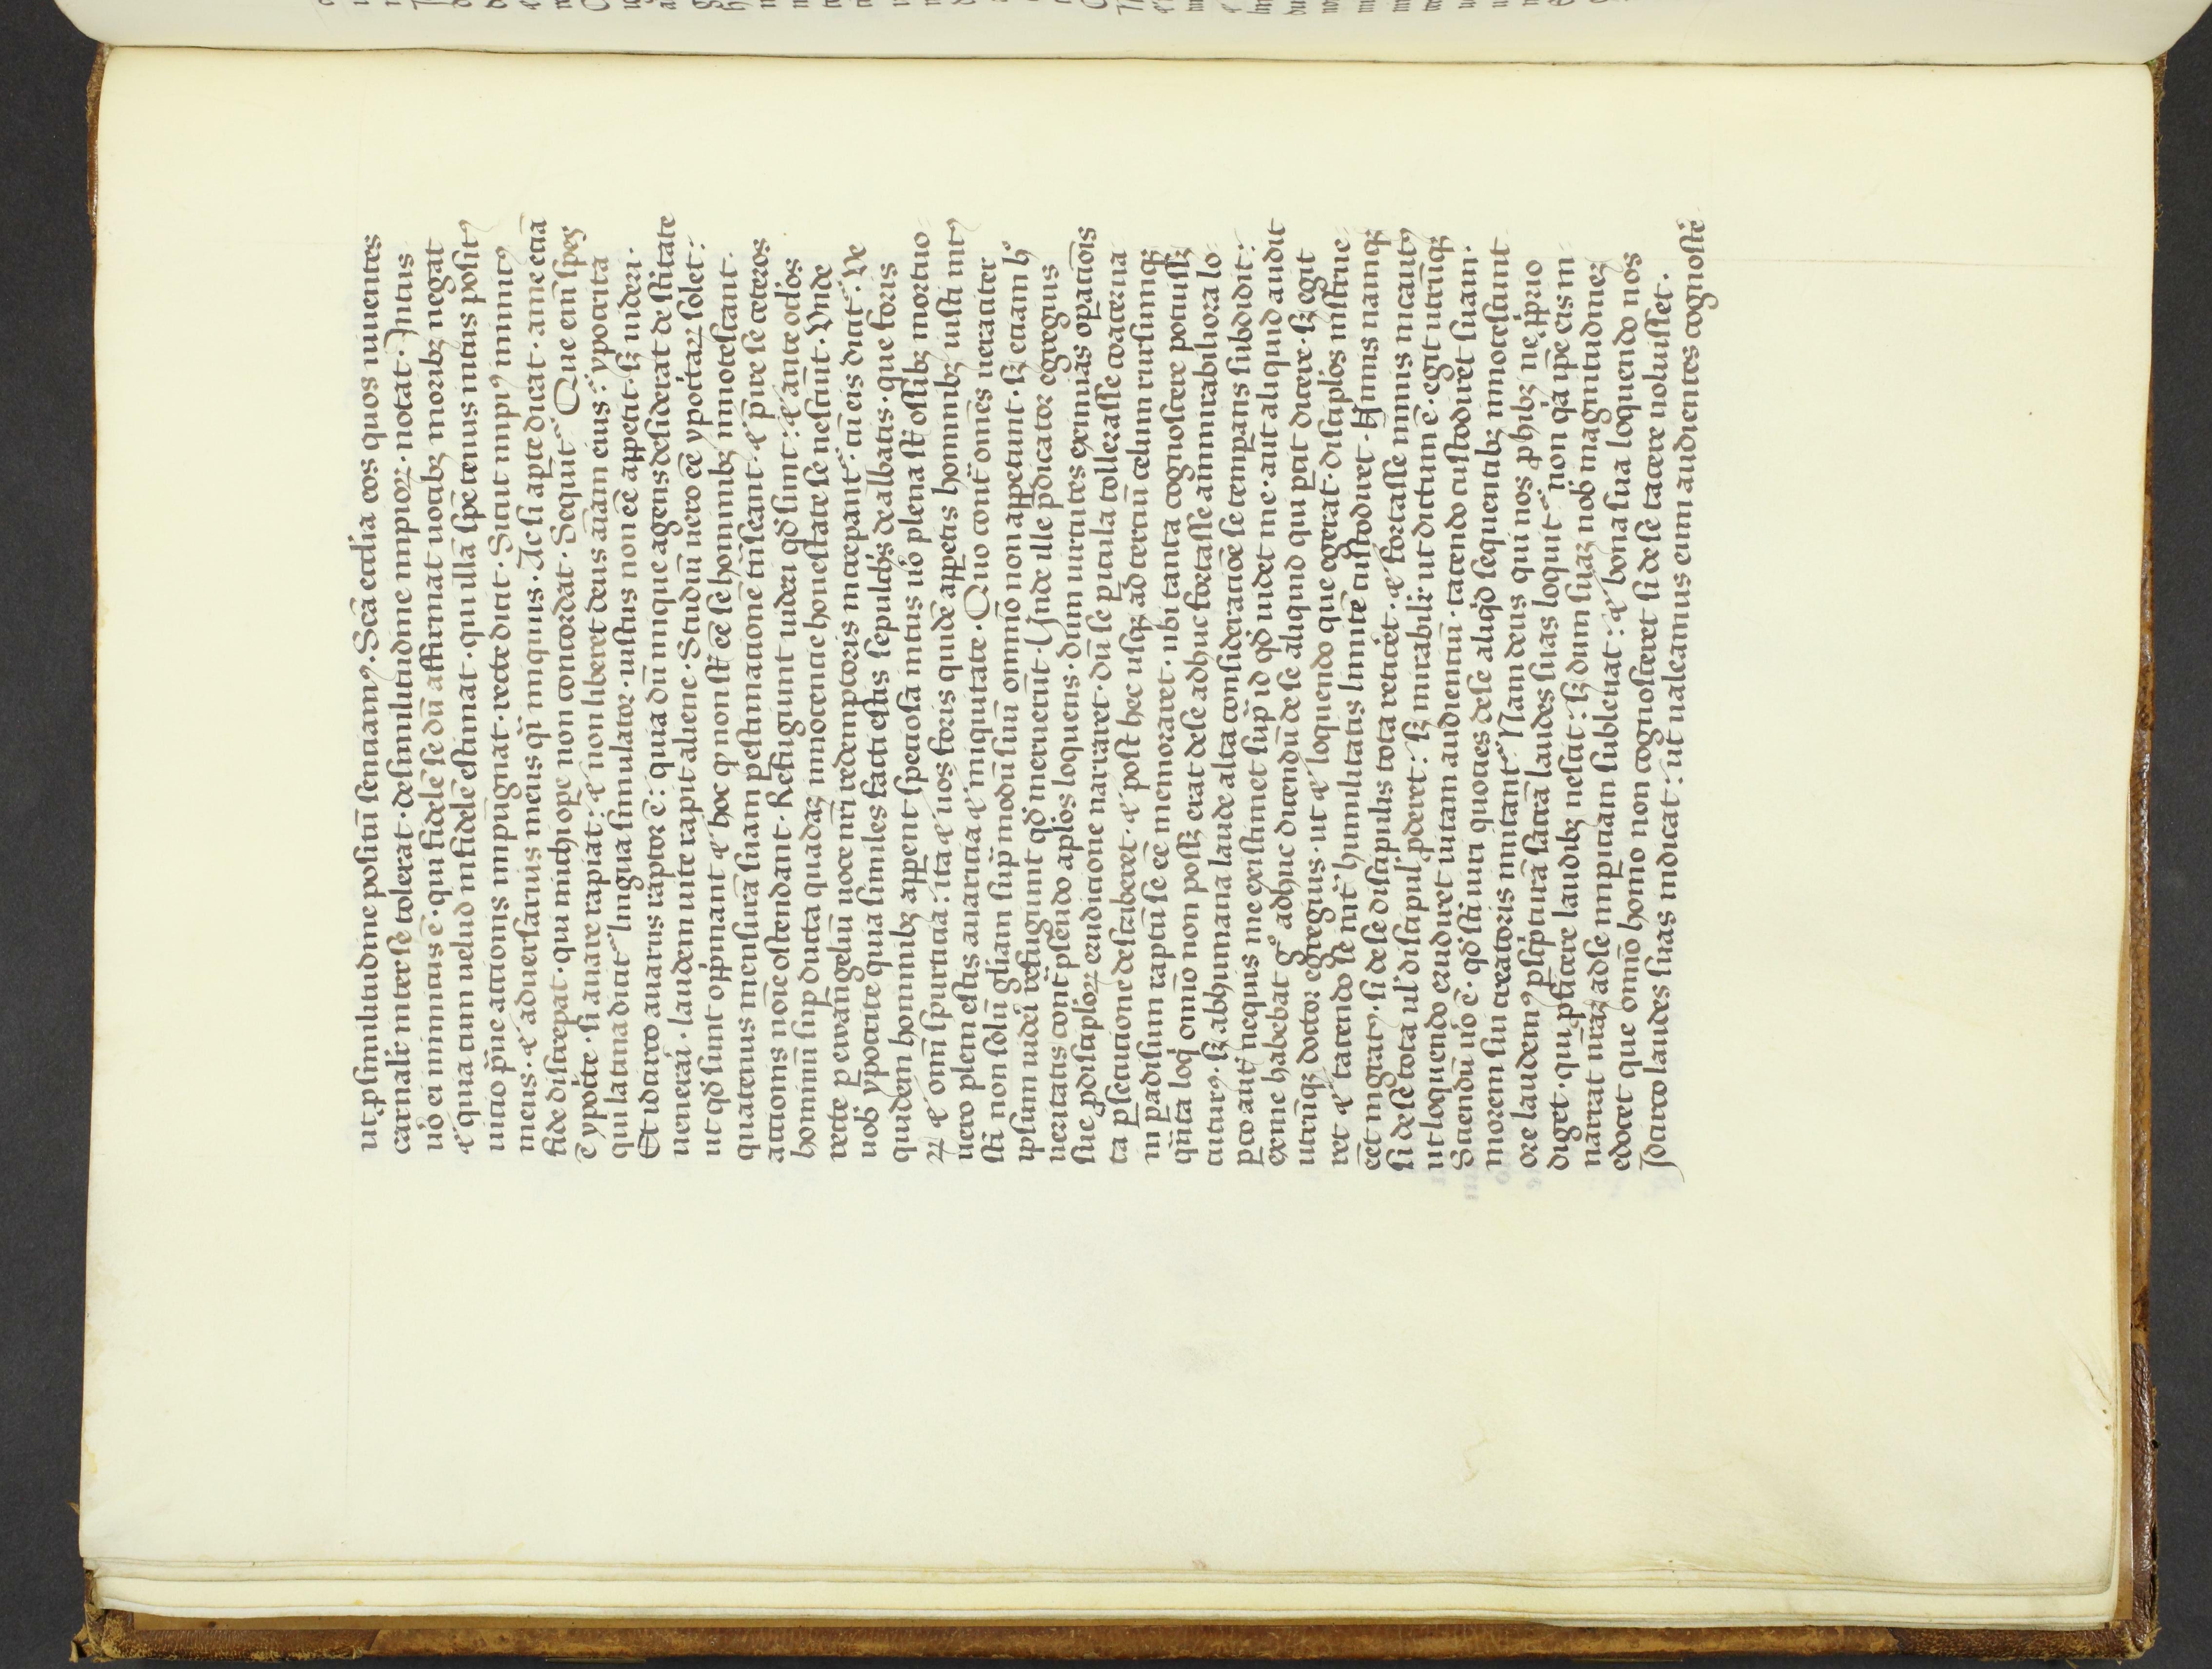 ut ꝓ similitudine positū sentiamꝰ. Scā ecclīa eos quos uiuentes
carnalit̄ inter se tolerat. de similitudine impioꝝ. notat. Intus
ūo ei inimicus ē. qui fidelē se dū affirmat uocibꝫ moribꝫ negat
⁊ quia cum uelud infidelē estimat. qui illā spē tenus intus positꝰ
initio p̄ue actionis impūgnat. recte dicit. Sicut impiꝰ inimicꝰ
meus. ⁊ aduersarius meus q̄i iniquus. Ac si aꝑte dicat. a me eciā
fide discrepat. qui michi oꝑe non concordat. Sequit̄ Que eīm spes
ē ypoc̄te. si auare rapiat: ⁊ non liberet deus aīam eius: ypocrita
qui latina dicit̄ lingua simulator. iustus non eē̄ appetit. sꝫ uideri.
Et idcirco auarus raptor ē: quia dū inique agens desiderat de sc̄itate
uenerari. laudem uite rapit aliene. Studiū uero eē̄ ypocitaꝝ solet:
ut qd̓ sunt opp̄mant ⁊ hoc qꝫ non st̄ eē̄ se hominibꝫ innotescant.
quatenus mensurā suam ꝑ estimacionē tn̄seant. ⁊ p̄ire se ceteros
actionis noīe ostendant. Refugiunt uideri qd̓ sunt: ⁊ ante oc̄los
hominū suꝑducta quadaꝫ innocencie honestate se uestiūnt. Vnde
recte ꝑ ewāngeliū uoce nr̄i redemptoris increpant̄. cū eis dicit̄. Ve
uob̄ ypocrite quia similes facti estis sepulch̓s dealbatis. que foris
quidem hominibꝫ apꝑent speciosa intus ūo plena st̄ ossibꝫ mortuo
ꝝ ⁊ omī spurticia: ita ⁊ uos foris quidē appetis hominibꝫ iusti intꝰ
uero pleni estis auaricia ⁊ iniquitate. Quo cont̄ omēs ueraciter
sc̄i non solū gl̄iam sup̄ modū suū ommīo non appetunt. sꝫ eciam hͦ
ipsum uidēi refugiunt qd̓ meruerūt. Unde ille p̄dicator egregius
ueritatis cont̄ psēudo apl̓os loquens. dum uirtutes eximias oꝑaciōis
sue ꝓ discipl̓oꝝ erudicione narraret. dū se ꝑicula tollerasse coacerua
ta ꝑsecucione describeret. ⁊ post hec usqꝫ ad terciū celum rursumqꝫ
in ꝑadisum raptū se eē̄ memoraret. ubi tanta cognoscere potuissꝫ
q̄nta loq̄ omīo non possꝫ erat de se adhuc fortasse ammirabiliora lo
cuturꝰ. sꝫ ab humana laude alta consideraciōe se temꝑans subdidit:
ꝑco aut̄ nequis me existimet sup̄ id qd̓ uidet me. aut aliquid audit
ex me habebat gͦ adhuc dicendū de se aliquid qui ꝑcat dicere. sꝫ egit
utrūqꝫ doctor egregius. ut ⁊ loquendo que egerat. discipl̓os instrue
ret ⁊ tacendo se int̄ humilitatis limitē custodiret. Nimis namqꝫ
eē̄t ingratꝰ. si de se discipulis tota reticēt. ⁊ fortasse nimis incautꝰ
si de se tota ul̄ discipul̄ ꝓderet: sꝫ mirabilit̄ ut dictum ē. egit utrūqꝫ
ut loquendo erudiret uitam audientiū. tacendo custodiret suam.
Sciendū ūo ē. qd̓ sc̄i uiri quocies de se aliq̓d sequentibꝫ innotescunt
morem sui creatoris imitant̄. Nam deus qui nos ꝓhibꝫ ne ꝓprio
ore laudemꝰ ꝑ sc̓pturā sacrā laudes suas loquit̄. non qͣ ip̄e eis in
diget. qui ꝓficere laudibꝫ nescit: sꝫ dum suaꝫ nob̄ magnitudineꝫ
nārrat nr̄aꝫ ad se impiciam subleuat: ⁊ bona sua loquendo nos
edocet que omīo homo non cognosceret si de se tacere uoluisset.
Idcirco laudes suas indicat: ut ualeamus eum audientes cognosc̄e